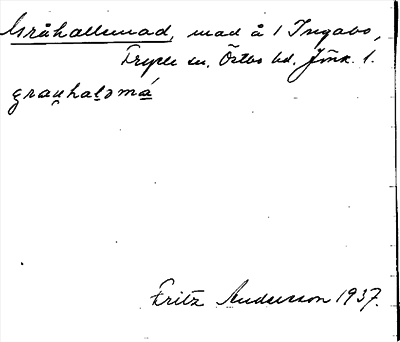 Gråhallemad, mad å 1 Ingabo,
Fryele sn. Östbo hd. Jönk. l.
grau̯haləmá
Fritz Andersson 1937.